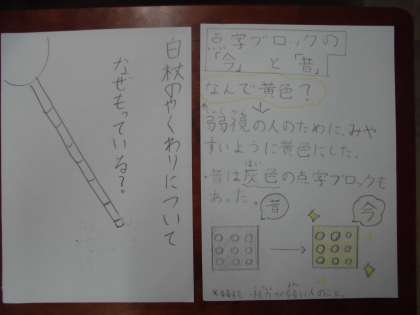 白杖のやくわりについて
なぜもっている?
点字ブロックの
「今」と「昔」
なんで黄色?
弱視の人のために、みや
すいように黄色にした。
・昔は灰色の点字ブロックも
はい
あった。
昔
今